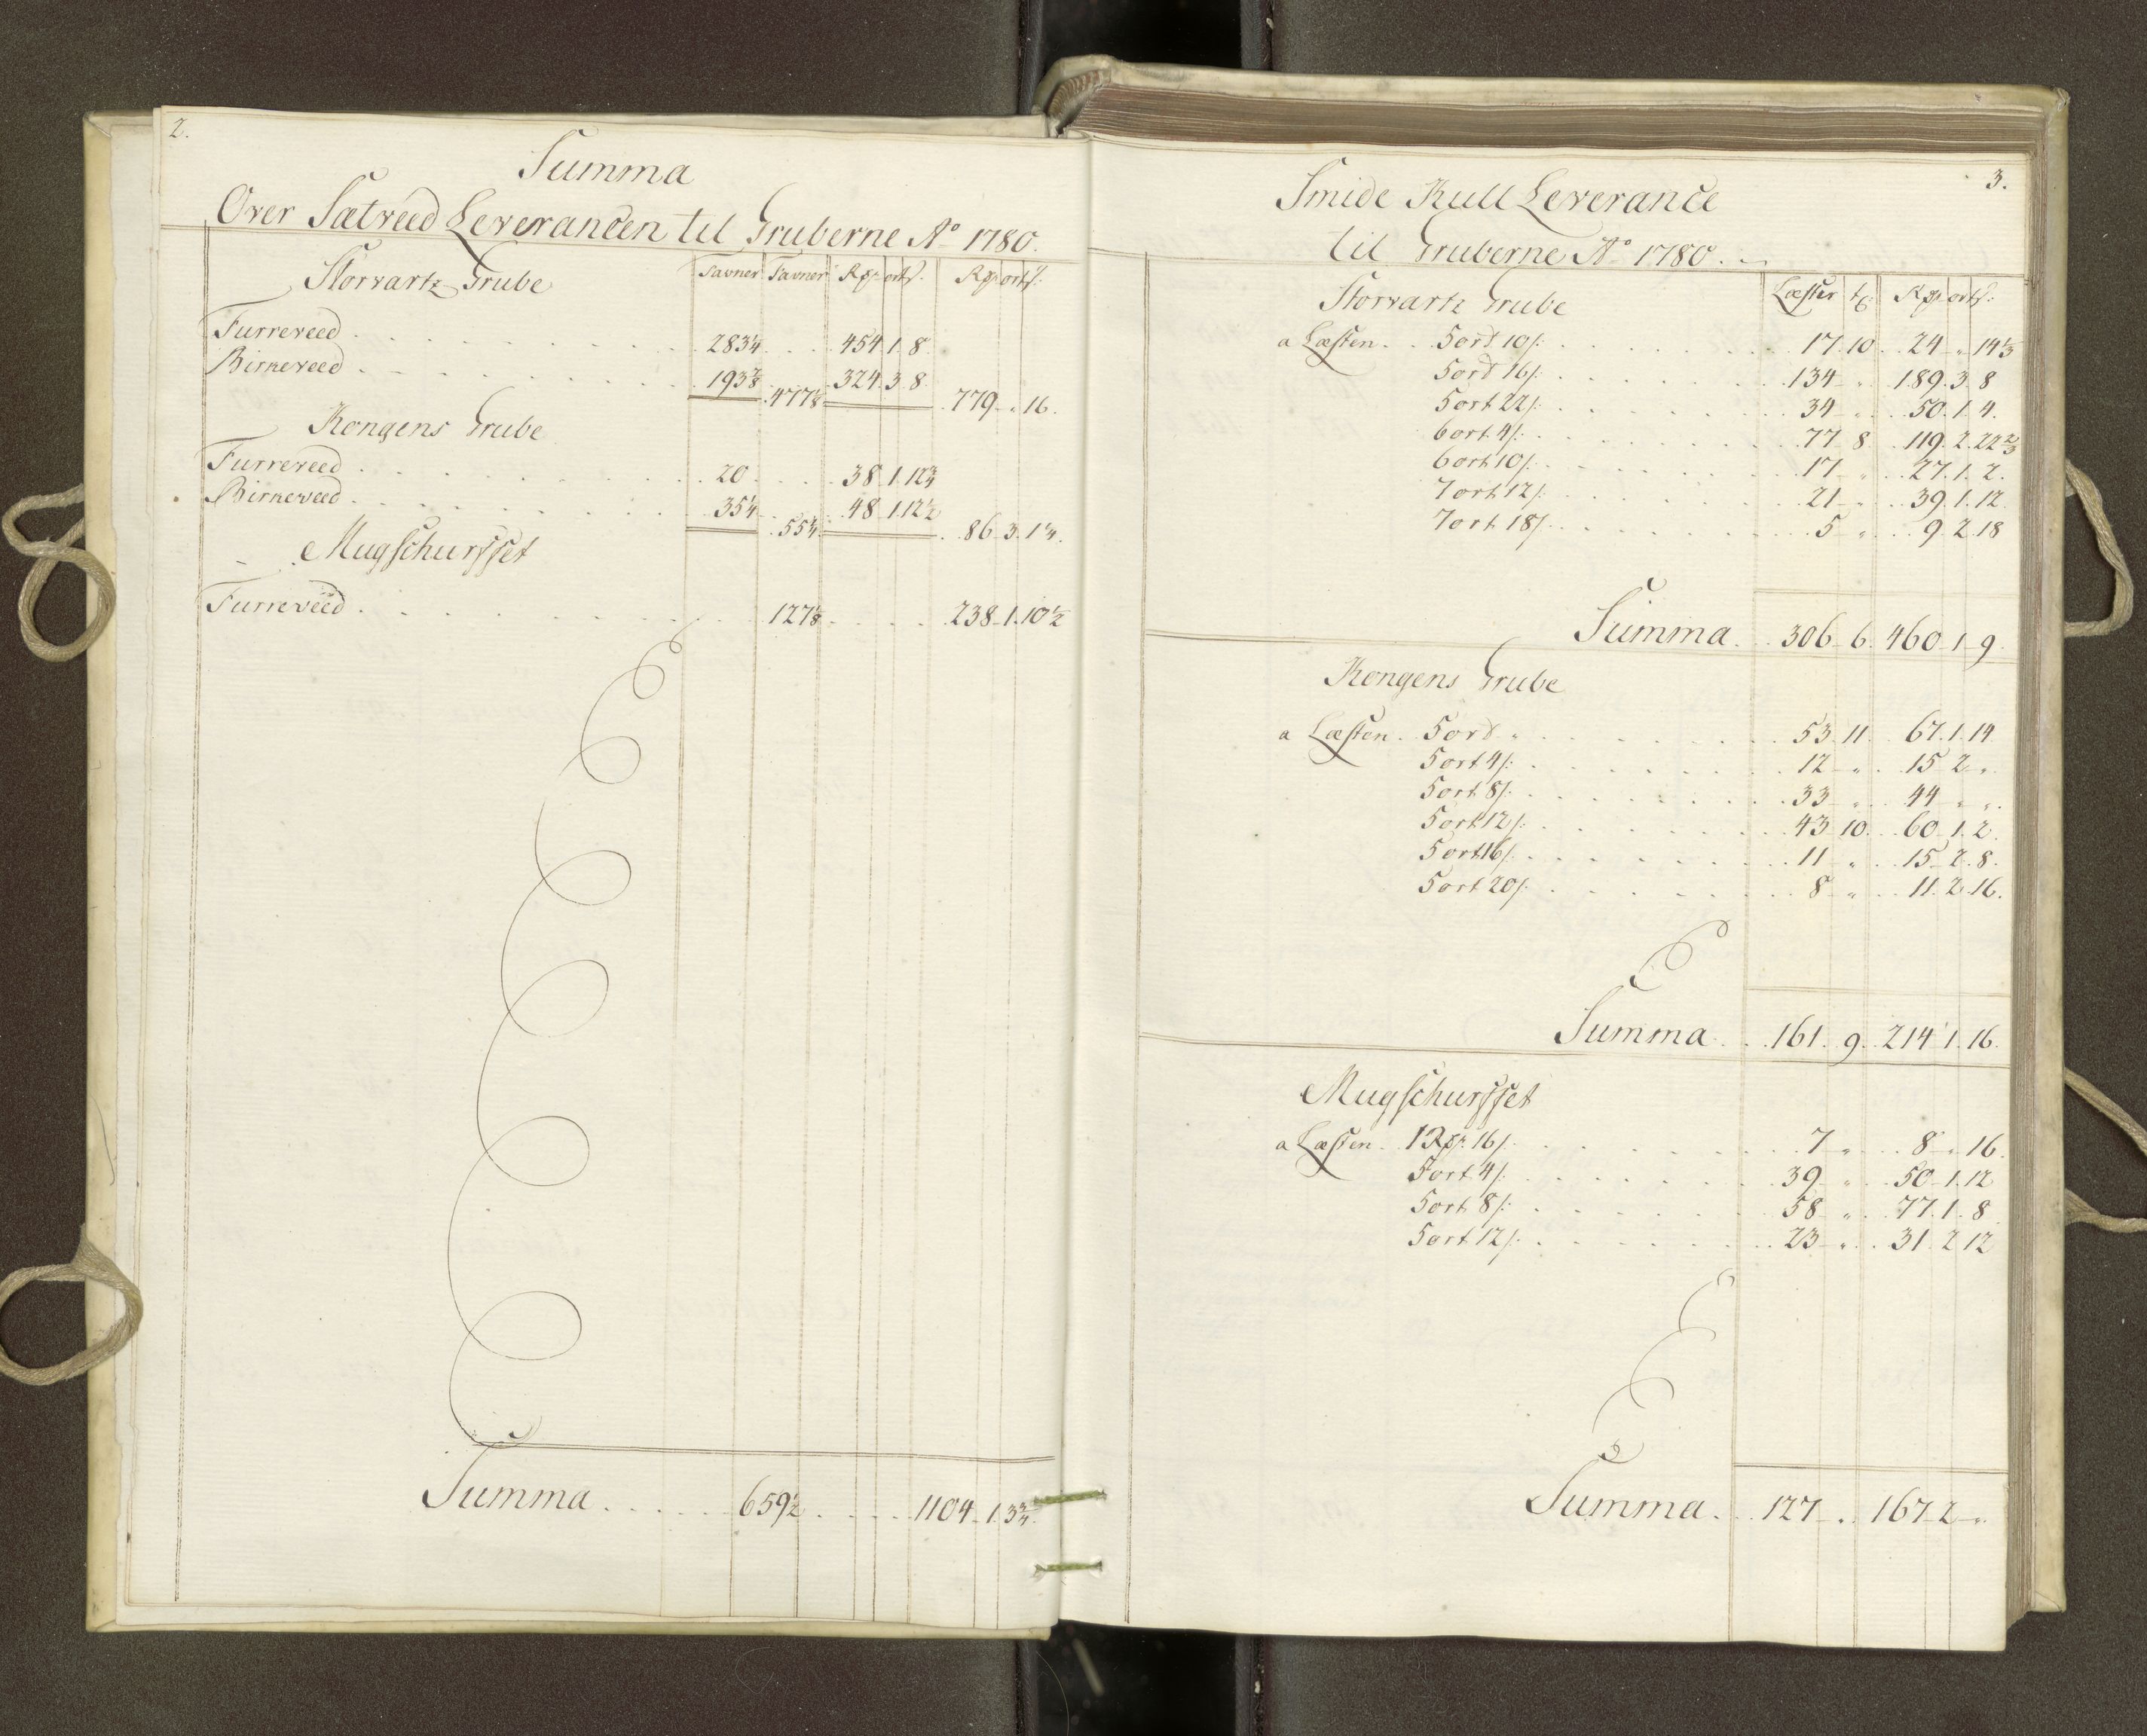 2.
Summa
Over Sætveed Leverancen til Gruberne Aº 1780.
Storvartz Grube Favner Favner Rdr ort s.
Rdr ort s.
Furreveed . 283¼ 454. 1. 8.
Birkeveed . 193⅞ 324. 3. 8.
477⅛ 779 " 16.
Kongens Grube
Furreveed . 20 38. 1. 12¾
Birkeveed . 35¼ 48 1. 12½
55¼ 86. 3. 1¼.
Mugschurfset
Furreveed . 127⅛ 238. 1. 10½
Summa . 659½ 1104. 1. 3¾.
3.
Smide Kull Leverance
til Gruberne Aº 1780.
Storvartz Grube Læster t: Rdr ort s:
a Læsten. 5 ord 10 s: 17. 10. 24 " 14⅓
5 ord 16 s: 134 " 189. 3. 8
5 ort 22 s: 34 " 50. 1. 4.
6 ort 4 s: 77 8. 119. 2. 22⅔
6 ort 10 s: 17 " 27. 1. 2.
7 ort 12 s: 21 " 39. 1. 12.
7 ort 18 s: 5 " 9. 2. 18
Summa . 306. 6. 460. 1. 9.
Kongens Grube
a Læsten. 5 ord " 53. 11. 67. 1. 14.
5 ort 4 s: 12 " 15. 2. "
5 ort 8 s: 33 " 44 " "
5 ort 12 s: 43. 10. 60. 1. 2.
5 ort 16 s: 11 " 15. 2. 8.
5 ort 20 s: 8 " 11. 2. 16.
Summa . 161. 9. 214. 1. 16.
Mugschurfset
a Læsten. 1 Rdr. 16 s: 7 " 8 " 16.
5 ort 4 s: 39 " 50. 1. 12
5 ort 8 s: 58 " 77. 1. 8
5 ort 12 s: 23 " 31. 2. 12
Summa . 127 " 167. 2 "